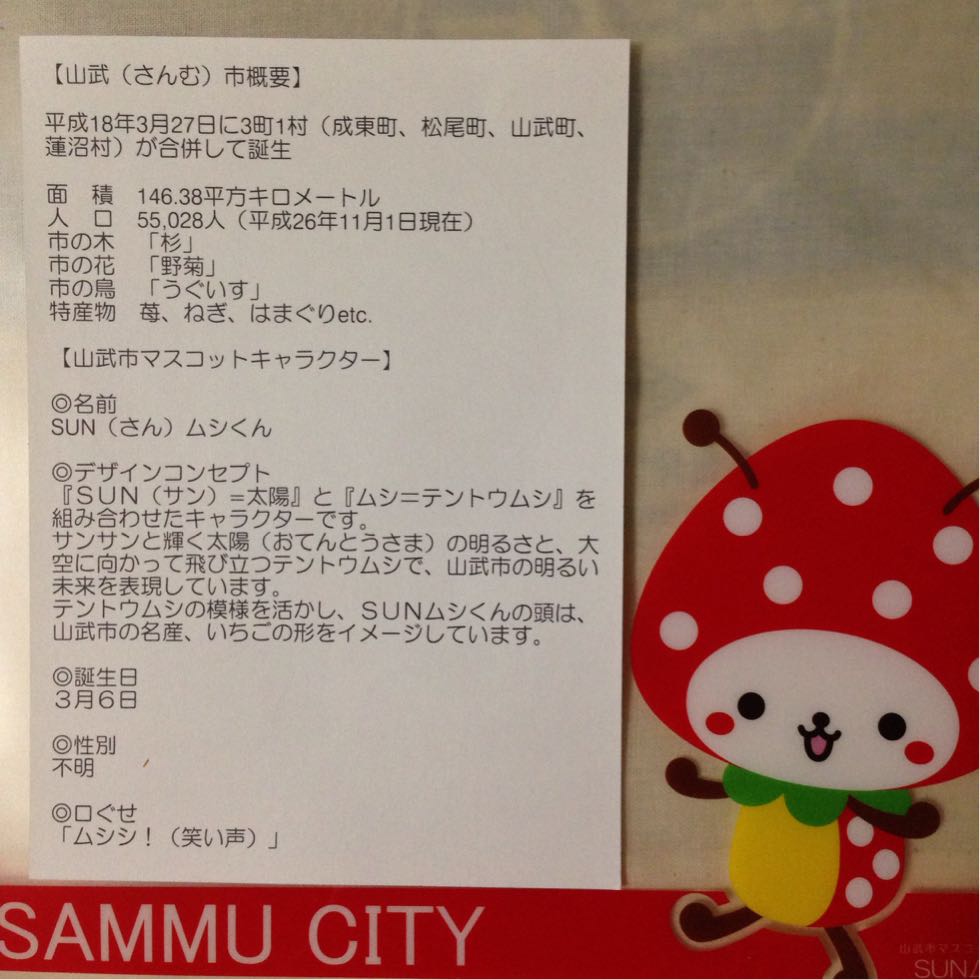 【山武（さんむ）市概要】
平成18年3月27日に3町1村（成東町、松尾町、山武町、
蓮沼村）が合併して誕生
面　積　146.38平方キロメートル
人　口　55,028人（平成26年11月1日現在）
市の木　「杉」
市の花　「野菊」
市の鳥　「うぐいす」
特産物　苺、ねぎ、はまぐりetc.
【山武市マスコットキャラクター】
◎名前
SUN（さん）ムシくん
◎デザインコンセプト
『ＳＵＮ（サン）＝太陽』と『ムシ＝テントウムシ』を
組み合わせたキャラクターです。
サンサンと輝く太陽（おてんとうさま）の明るさと、大
空に向かって飛び立つテントウムシで、山武市の明るい
未来を表現しています。
テントウムシの模様を活かし、ＳＵＮムシくんの頭は、
山武市の名産、いちごの形をイメージしています。
◎誕生日
３月６日
◎性別
不明
◎口ぐせ
「ムシシ！（笑い声）」
SAMMU CITY
山武市マスコ
SUN